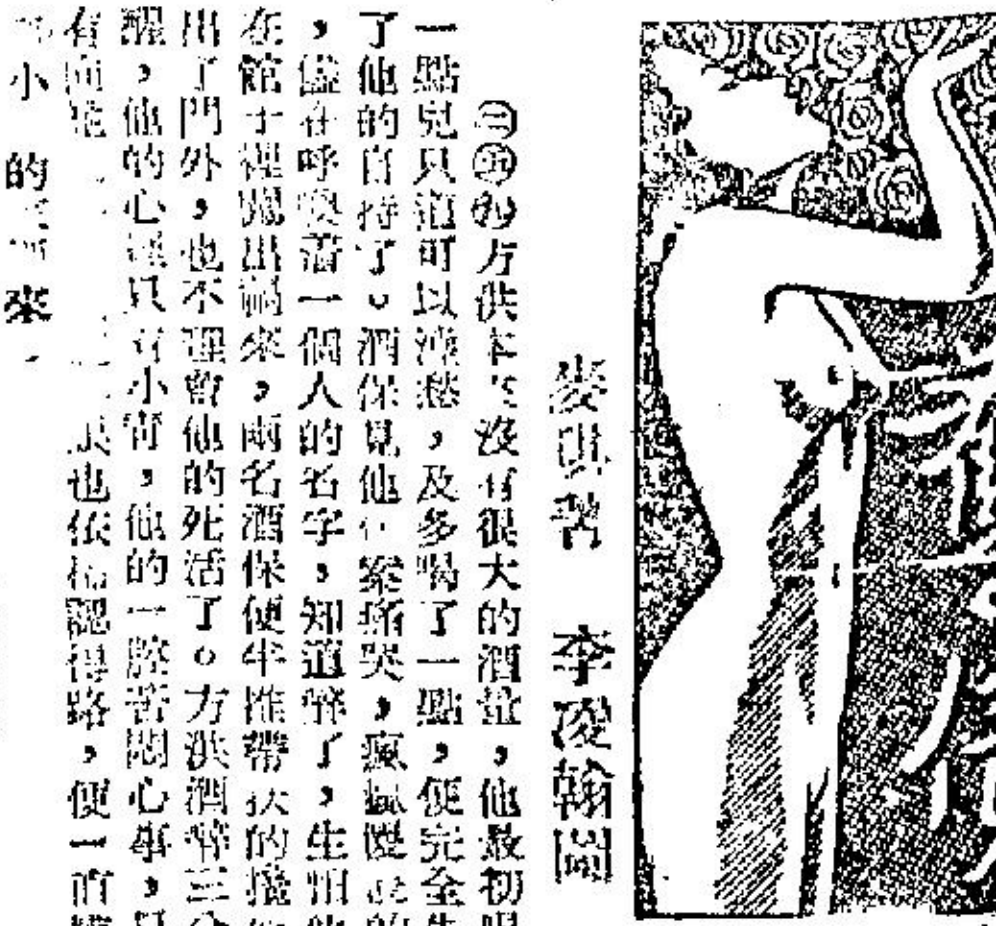 麥 著 李凌翰圖
方洪本來沒有很大的酒量，他最初喝
一點兒只道可以澆愁，及多喝了一點，便完全失
了他的自持了。酒保見他伏案痛哭，瘋瘋 的
，儘在呼喚着一個人的名字，知道醉了，生怕他
在館子裡鬧出禍來，兩名酒保便半推帶扶的攙他
出了門外，也不理會他的死活了。方洪酒醉三分
醒，他的心裡只有小 ，他的一腔苦悶心事，只
有向 也依稀認得路，便一直
小 的 來